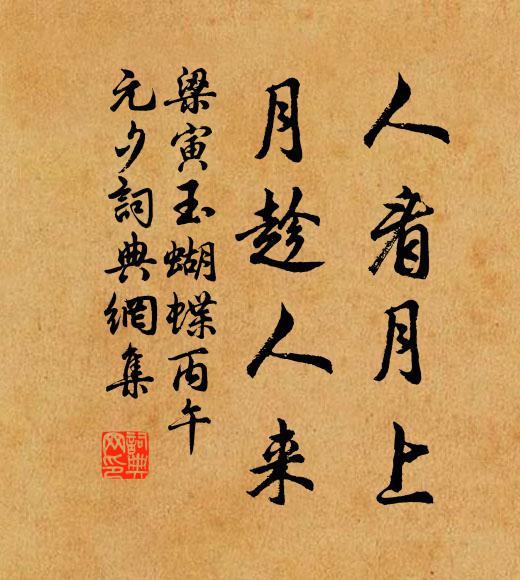 人看月上
月趁人来
梁寅玉蝴蝶丙午
元夕詞典網集
詞典
网印